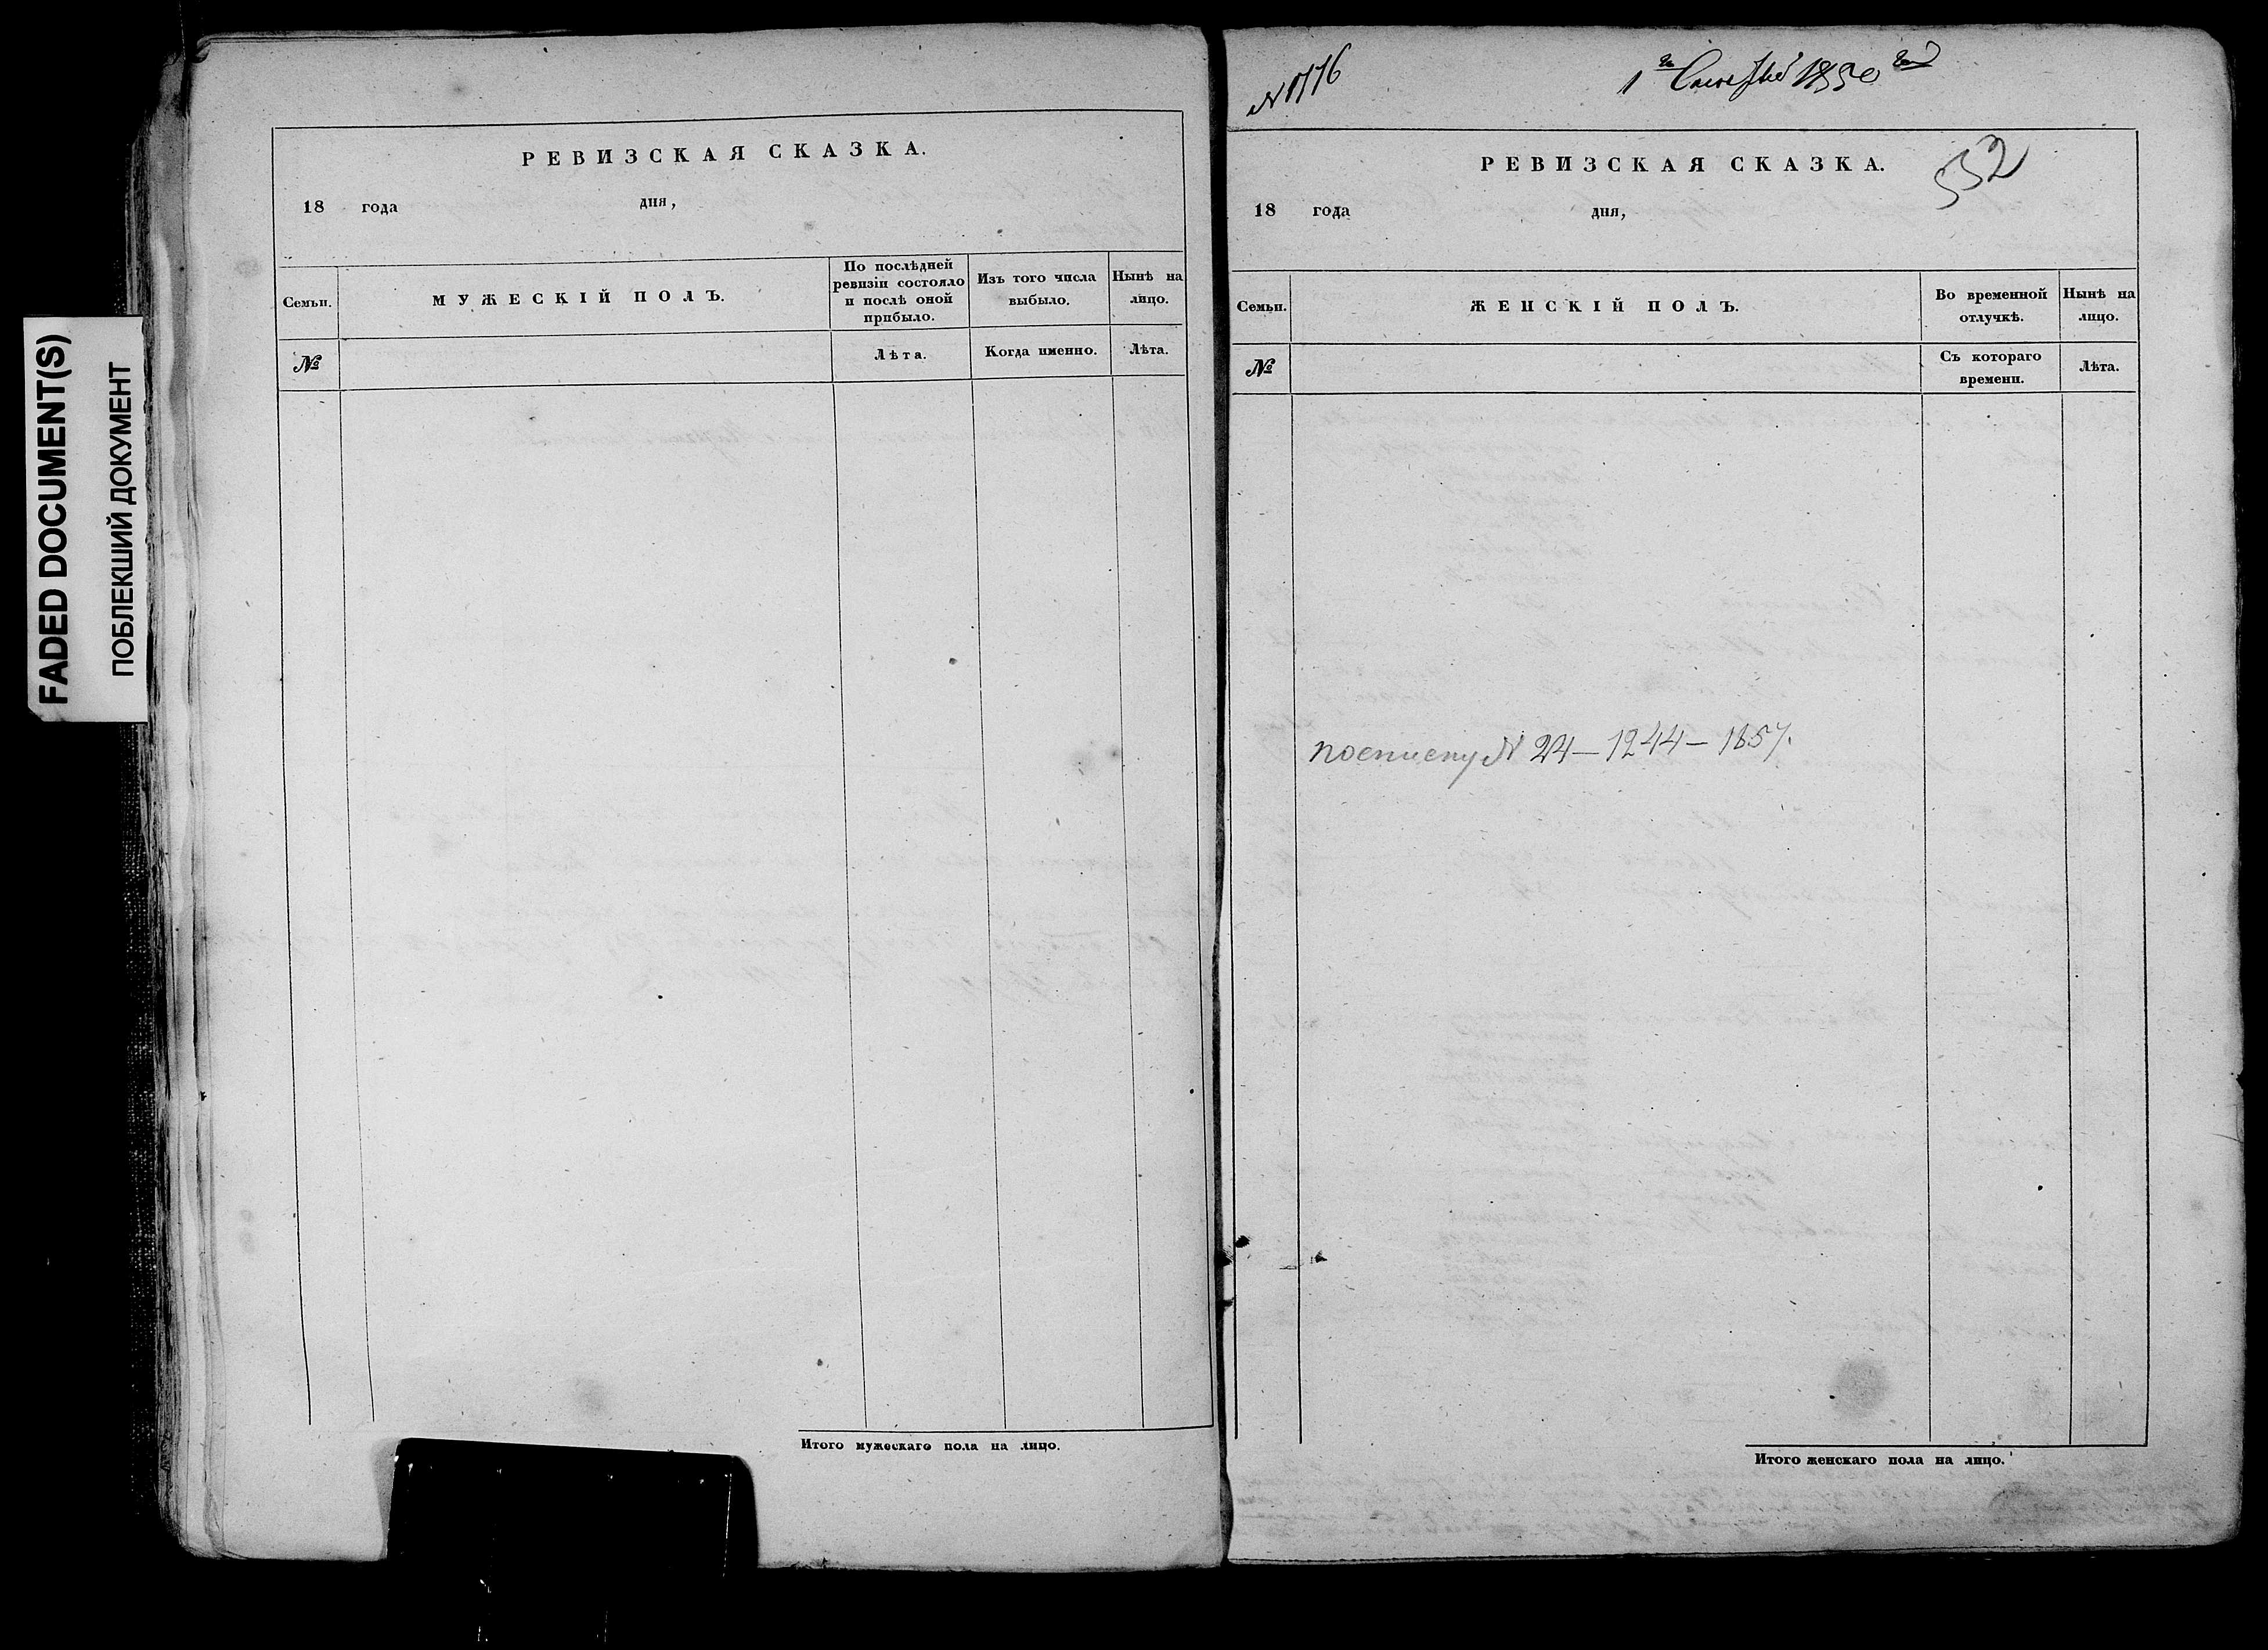 FADED DOCUMENT(S)
ПОБЛЕКШИЙ ДОКУМЕНТ
РЕВИЗСКАЯ СКАЗКА.
18 года дня,
Семьи. МУЖЕСКІЙ ПОЛЪ. По послѣдней ревизіи состояло и послѣ оной прибыло. Изъ того числа выбыло. Нынѣ на лицо.
№ Лѣта. Когда именно. Лѣта.
Итого мужескаго пола на лицо.
1 1850
РЕВИЗСКАЯ СКАЗКА.
552
18 года дня,
Семьи. ЖЕНСКІЙ ПОЛЪ. Во временной отлучкѣ. Нынѣ на лицо.
№ Съ котораго времени. Лѣта.
посписку № 24 — 1244 — 1857.
Итого женскаго пола на лицо.